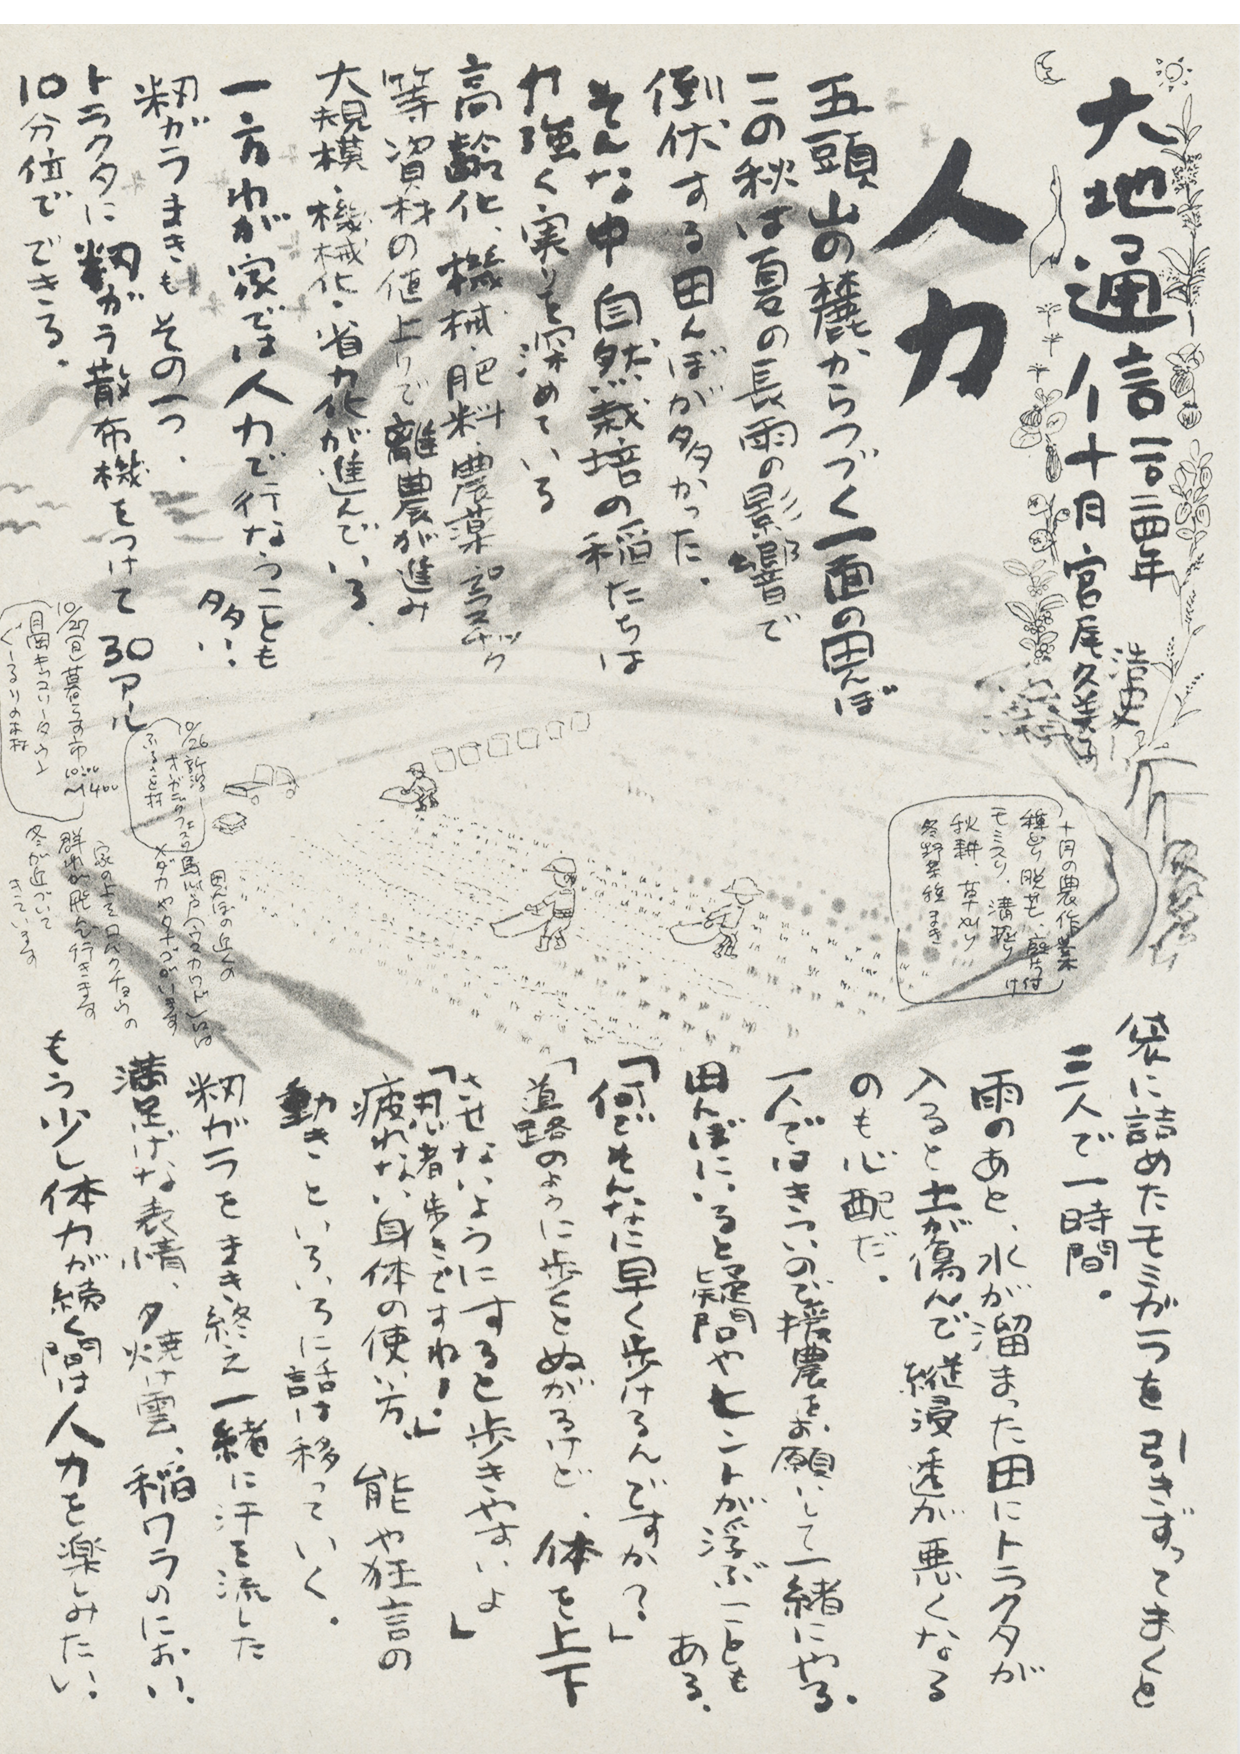 大地通信 二〇二四年
十月 宮尾 浩史
久美子
人力
五頭山の麓からつづく一面の田んぼ
この秋は夏の長雨の影響で
倒伏する田んぼが多かった。
そんな中 自然栽培の稲たちは
力強く実りを深めている
高齢化、機械・肥料・農薬・プラスチック
等資材の値上りで離農が進み
大規模・機械化・省力化が進んでいる。
一方わが家では人力で行なうことも
多い。
籾がラまきもその一つ、
トラクタに籾がラ散布機をつけて 30アル
10分位でできる。
十月の農作業
種どり 脱芒、片付け
モミスリ、溝掘り
秋耕 草刈り
冬野菜種まき
田んぼの近くの
メダカやタナゴがいます
家の上をハクチョウの
群れが飛んで行きます
冬が近づいて
きています
10/26 新潟
オーガニックフェスタ
ふるさと村
暮らす市 10:00〜14:00
ぐーるりの森
袋に詰めたモミがラを引きずってまくと
三人で一時間。
雨のあと、水が溜まった田にトラクタが
入ると土が傷んで縦浸透が悪くなる
のも心配だ。
一人ではきついので援農をお願いして一緒にやる。
田んぼにいると疑問やヒントが浮ぶことも
ある。
「何でそんなに早く歩けるんですか？」
「道路のように歩くとぬがるけど、体を上下
させないようにすると歩きやすいよ」
「忍者歩きですね！」
疲れない身体の使い方、能や狂言の
動きといろいろに話は移っていく。
籾がラをまき終え一緒に汗を流した
満足げな表情、夕焼け雲、稲ワラのにおい、
もう少し体力が続く間は人力を楽しみたい。